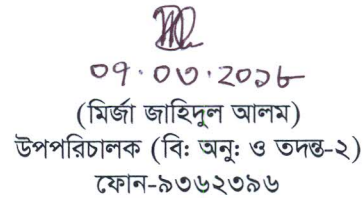 ০৭.০৩.২০১৮
(মির্জা জাহিদুল আলম)
উপপরিচালক (বি: অনু: ও তদন্ত-২)
ফোন-৯৩৬২৩৯৬